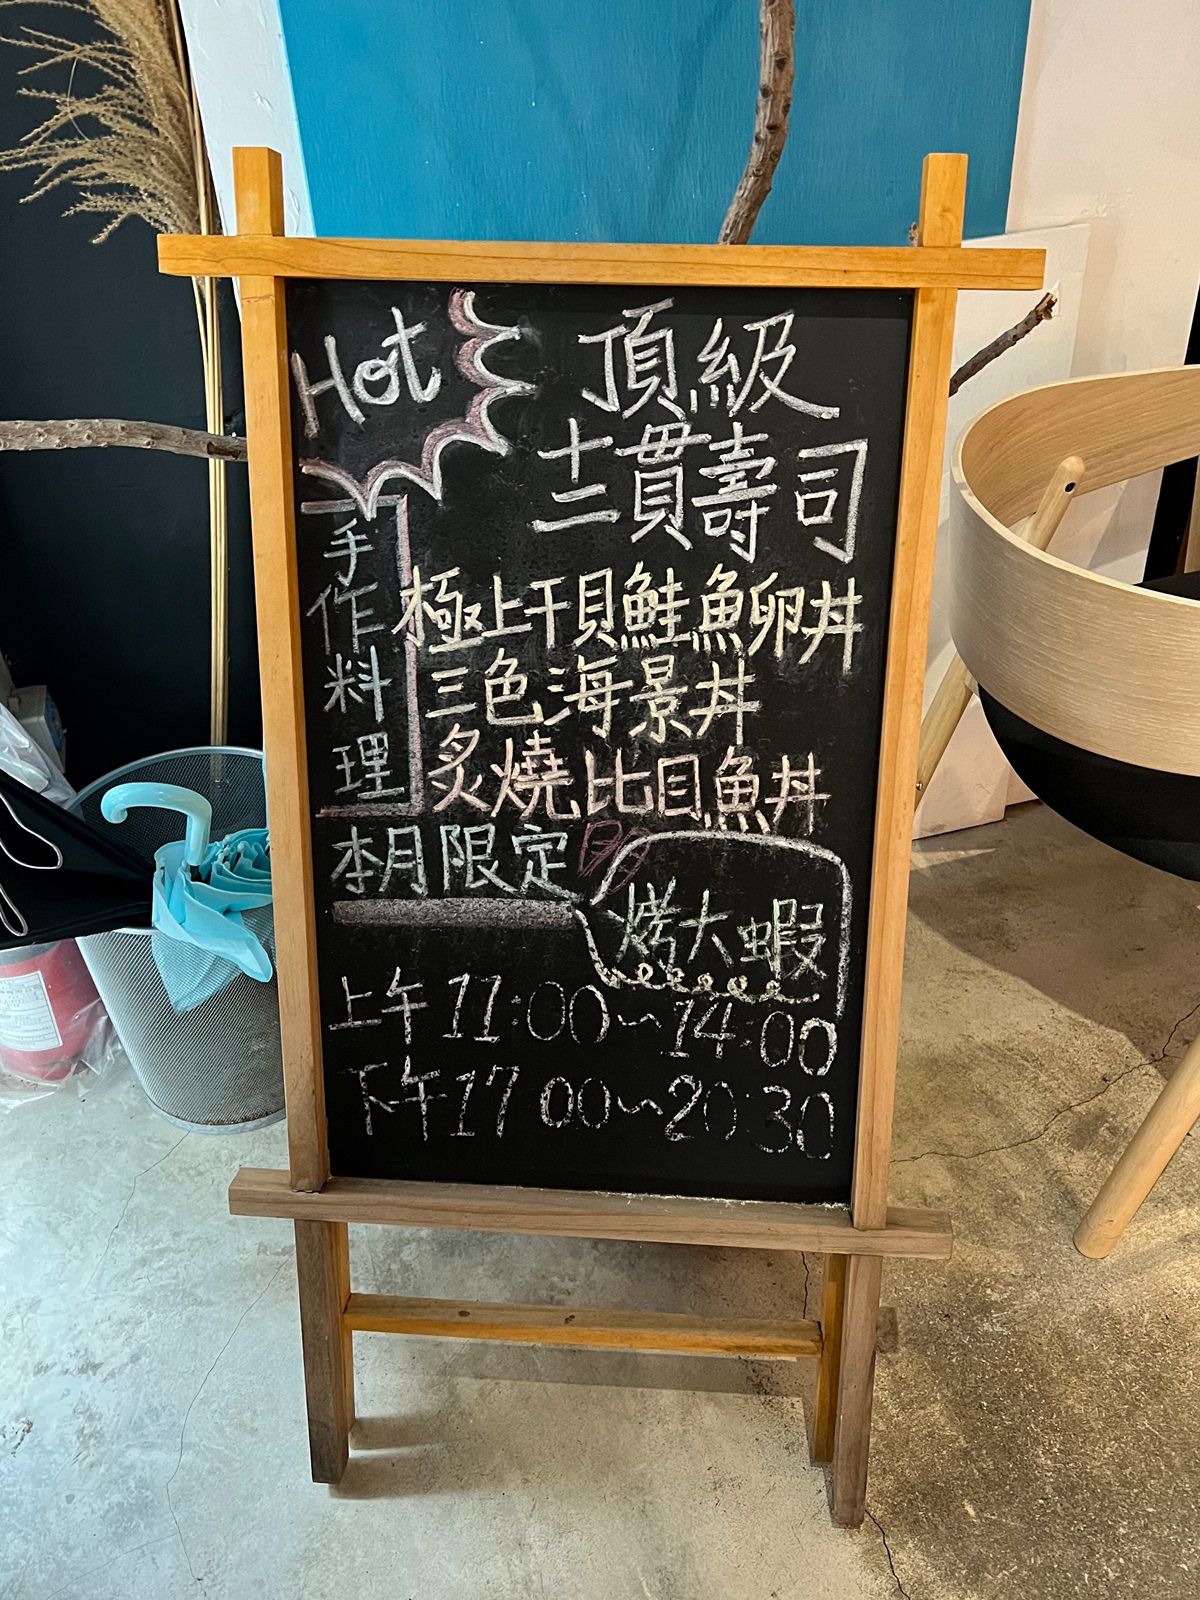 Hot
頂級
十二貫壽司
手作料理
極上干貝鮭魚卵丼
三色海景丼
炙燒比目魚丼
本月限定
烤大蝦
上午 11:00~14:00
下午 17 00~20:30